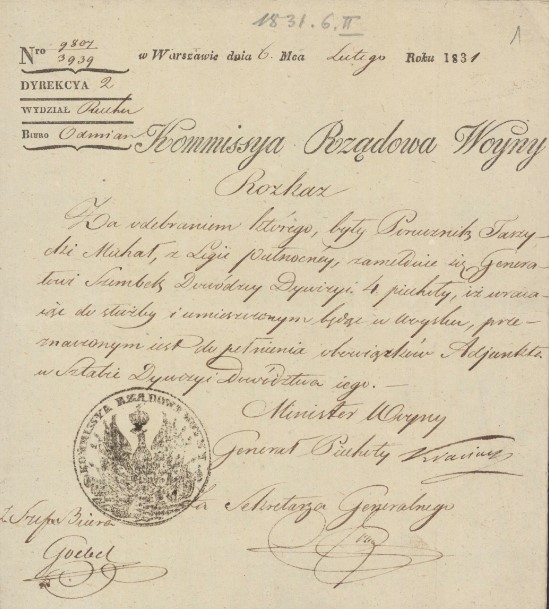 1831.6.II
1
Nro 9807
3939
w Warszawie dnia 6. Mca Lutego Roku 1831
DYREKCYA 2
WYDZIAŁ Piechoty
BIURO Odmian
Kommissya Rządowa Woyny
Rozkaz
Za odebraniem którego, były Porucznik Tarzy-
cki Michał, z Legii Północney, zamelduie się Genera-
łowi Szembek Dowodzcy Dywizyi 4 piechoty, iż wraca-
iąc do służby i umieszczonym będąc w woysku, prze-
znaczonym iest do pełnienia obowiązków Adjunkta
w Sztabie Dywizyi Dowództwa iego. —
Minister Woyny
Generał Piechoty
KOMMISSYA RZĄDOWA WOYNY
Za Sekretarza Generalnego
Z. Szefa Biura
Goebel